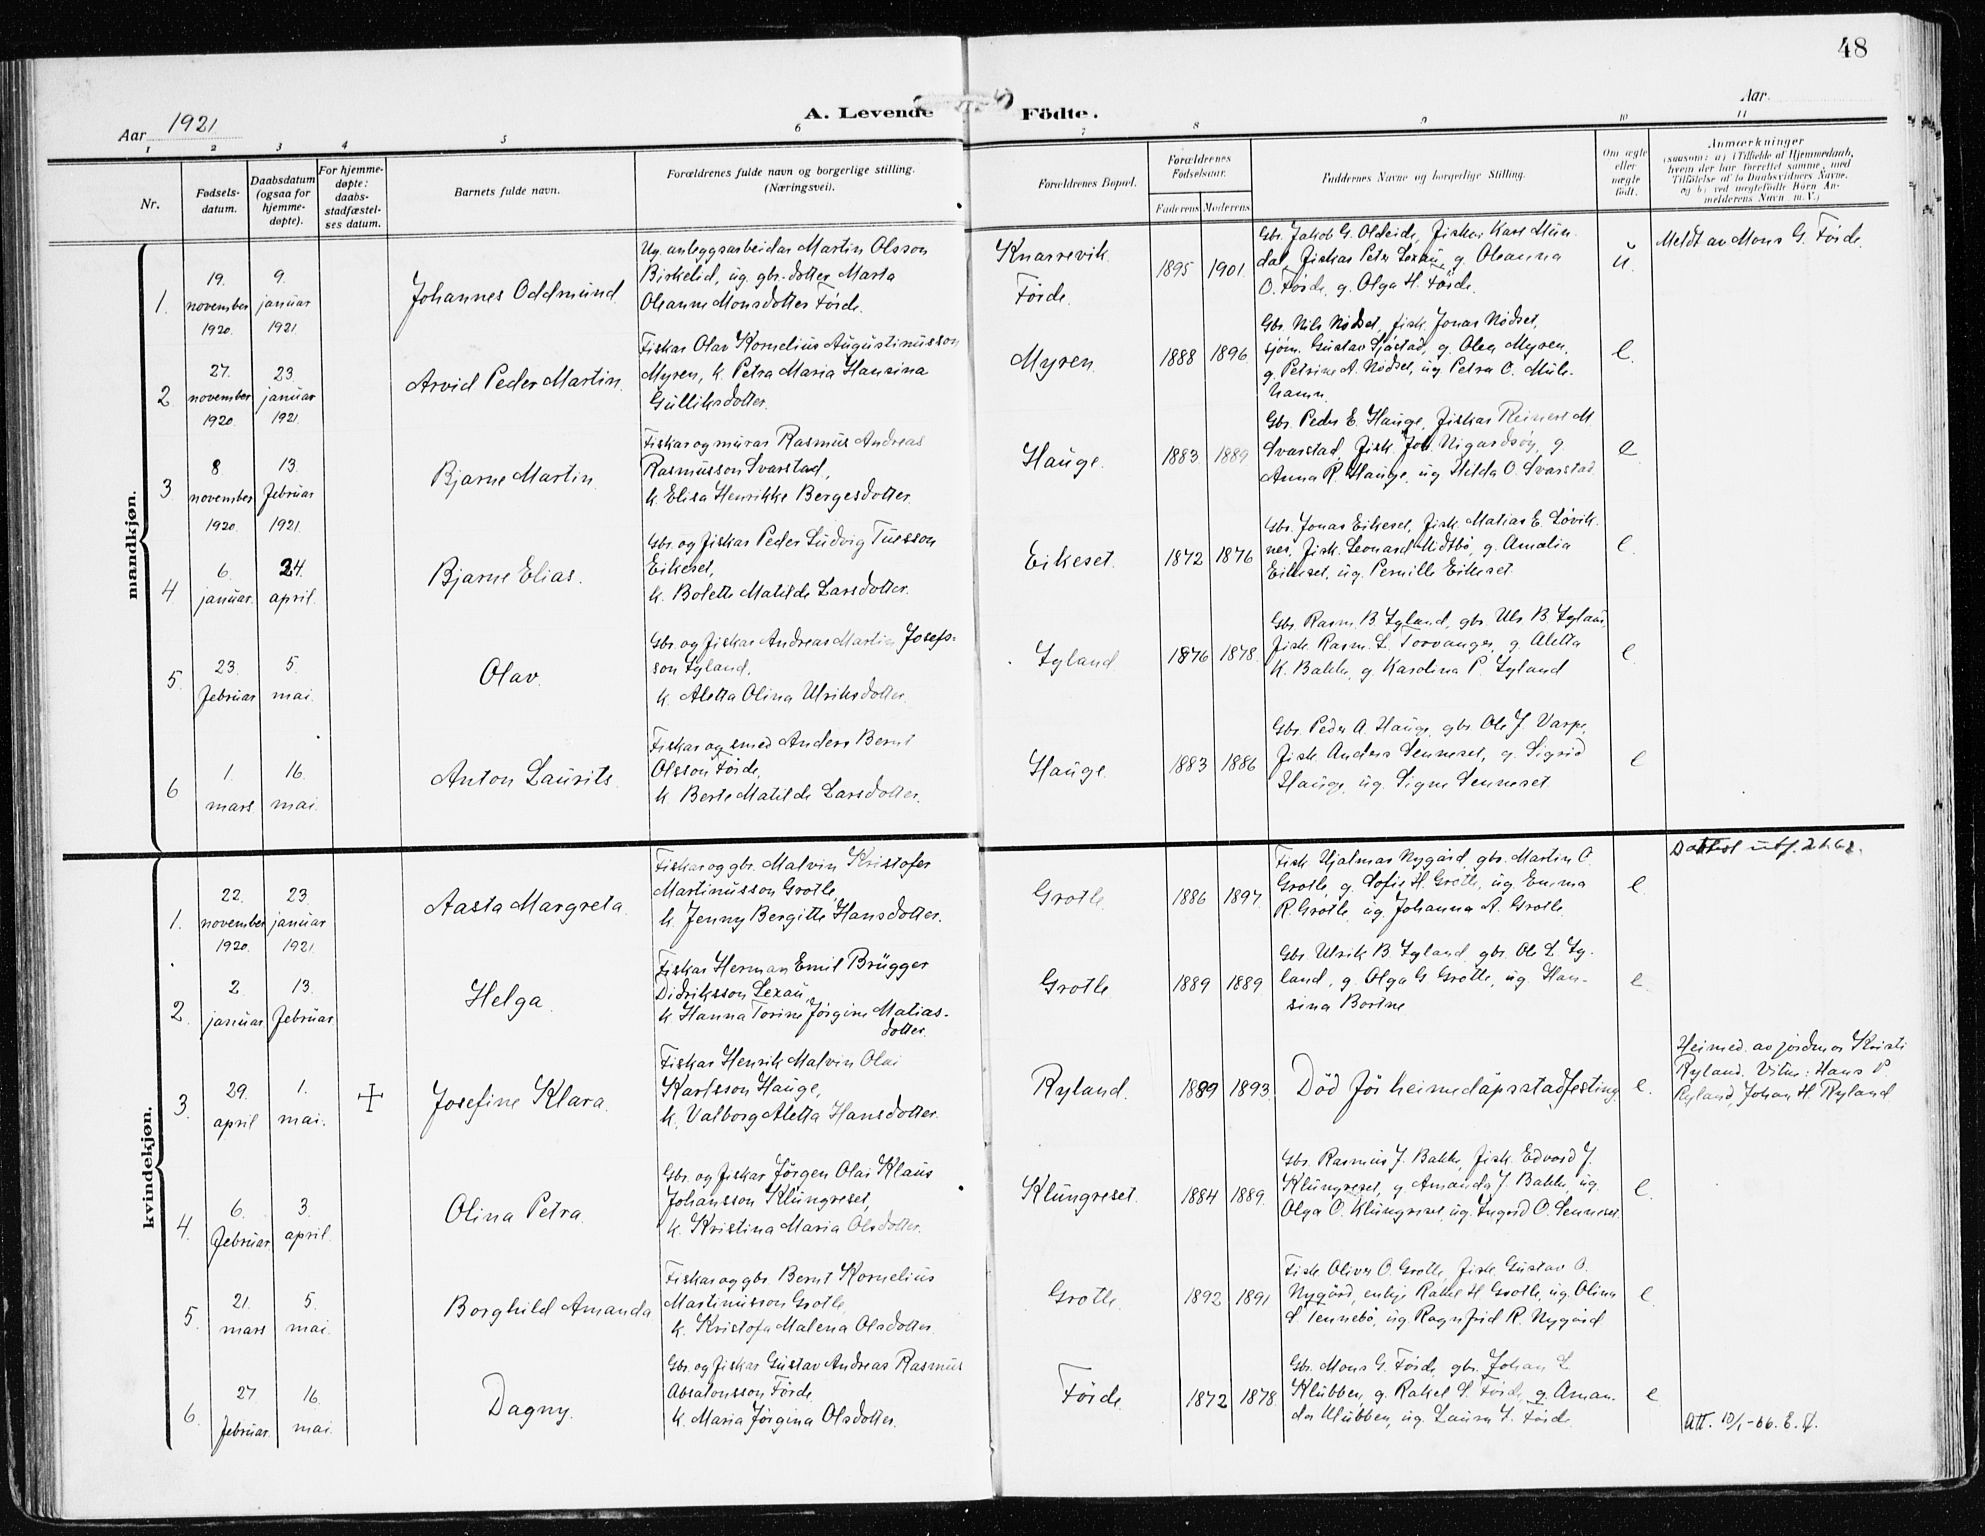 48
Aar 1921
A. Levende Födte.
Aar.
1 2 3 4 5 6 7 8 9 10 11
Nr.
Fødsels-
datum.
Daabsdatum
(ogsaa for
hjemme-
døpte).
For hjemme-
døpte:
daabs-
stadfæstel-
ses datum.
Barnets fulde navn.
Forældrenes fulde navn og borgerlige stilling.
(Næringsvei).
Forældrenes Bopæl.
Forældrenes
Fødselsaar.
Faderens Moderens
Faddernes Navne og borgerlige Stilling.
Om ægte
eller
uægte
født.
Anmærkninger
(saasom: a) i Tilfælde af Hjemmedaab,
hvem der har forrettet samme, med
Tilføielse af to Daabsvidners Navne,
og b) ved uægtefødte Børn An-
melderens Navn m. V.)
mandkjøn.
1.
19.
november
1920.
9.
januar
1921
Johannes Oddmund
Ug. anleggsarbeidar Martin Olsson
Birkelid, ug. gbr. dotter Marta
Oleanne Monsdotter Förde.
Knarrevik.
Förde.
1895 1901.
Gbr. Jakob G. Oldeide, fiskar Karl Mün-
dal, fiskar Peter Lexau, g. Oleanna
O. Förde, g. Olga H. Förde.
u.
Meldt av Mons G. Förde.
2
27.
november
1920
23.
januar
1921.
Arvid Peder Martin.
Fiskar Olav Kornelius Augustinusson
Myren, k. Petra Maria Hansina
Gulliksdotter.
Myren.
1888 1896.
Gbr. Nils Nödset, fisk. Jonas Nödset,
sjöm. Gustav Sjåstad, g. Olea Myren,
g. Petrine A. Nödset, ug Petra O. Mule-
hamn.
e.
3
8
november
1920.
13.
februar
1921.
Bjarne Martin.
Fiskar og murar Rasmus Andreas
Rasmusson Svarstad,
k. Elisa Henrikke Bergesdotter.
Hauge.
1883 1889
Gbr. Peder E. Hauge, fiskar Reinert M
Svarstad, fisk. Joh. Nigardsøy, g.
Anna R. Hauge, ug Hilda O. Svarstad
e.
4
6.
januar.
24.
april.
Bjarne Elias.
Gbr. og fiskar Peder Ludvig Tuesson
Eikeset,
k. Bolette Matilde Larsdotter.
Eikeset.
1872 1876
Gbr. Jonas Eikeset, fisk. Matias E. Lövik-
nes, fisk. Leonard Midtbö, g. Amalia
Eikeset, ug. Pernille Eikeset
e.
5.
23.
februar
5.
mai.
Olav.
Gbr. og fiskar Andreas Martin Josefs-
son Igland,
k. Aletta Olina Ulriksdotter.
Igland.
1876 1878.
Gbr. Rasm. B Igland, gbr. Ulr. B. Igland
fisk. Rasm. L. Torvanger, g Aletta
K. Bakke, g Karolina P. Igland
e.
6
1.
mars
16.
mai.
Anton Laurits.
Fiskar og smed Anders Bernt
Olsson Förde,
k Berte Matilde Larsdotter.
Hauge.
1883 1886
Gbr. Peder A. Hauge, gbr Ole J. Varpe,
fisk Anders Senneset, g. Sigrid
Hauge, ug. Signe Senneset
e
kvindekjøn.
1.
22.
november
1920.
23.
januar
1921.
Aasta Margreta.
Fiskar og gbr. Malvin Kristofer
Martinusson Grotle,
k. Jenny Bergitte Hansdotter.
Grotle.
1886 1897.
Fisk. Hjalmar Nygård gbr. Martin O.
Grotle, g. Sofie H. Grotle, ug. Emma
R. Grotle, ug Johanna A. Grotle.
e.
Dattest utf. 21.68.
2.
2.
januar.
13.
februar.
Helga.
Fiskar Herman Emil Brügger
Didriksson Lexau,
k Hanna Torine Jörgine Matias-
dotter.
Grotle
1889 1889
Gbr Ulrik B. Igland, gbr. Ole L. Ig-
land, g. Olga G Grotle, ug. Han-
sina Bortne
e.
3.
29.
april
1.
mai.
+
Josefine Klara.
Fiskar Henrik Malvin Olai
Karlsson Hauge,
k. Valborg Aletta Hansdotter.
Ryland.
1889 1893.
Död för heimedåpsstadfesting
e.
Heimed. av jordmor Kristi
Ryland. Vitne: Hans P.
Ryland, Johan H. Ryland
4.
6.
februar.
3.
april.
Olina Petra.
Gbr. og fiskar Jörgen Olai Klaus
Johansson Klungreset,
k. Kristina Maria Olsdotter.
Klungreset.
1884 1889.
Gbr. Rasmus J. Bakke, fisk. Edvard J.
Klungreset, g. Amanda J. Bakke, ug.
Olga O. Klungreset, ug. Ingerd O. Senneset.
e.
5.
21.
mars
5.
mai.
Borghild Amanda
Fiskar og gbr. Bernt Kornelius
Martinusson Grotle,
k. Kristofa Malena Olsdotter.
Grotle.
1892 1891
Fisk. Oliver O. Grotle, fisk. Gustav O.
Nygård, enkje Rakel H Grotle, ug. Olina
S. Tennebö, ug. Ragnfrid R. Nygård
e.
6.
27
februar.
16.
mai.
Dagny.
Gbr. og fiskar Gustav Andreas Rasmus
Absalonsson Förde
k. Maria Jörgina Olsdotter.
Förde.
1872 1878.
Gbr. Mons G. Förde, gbr. Johan L.
Klubben, g. Rakel S. Förde, g. Aman-
da Klubben, ug. Laura L. Förde.
e
Att. 10/1-66. E.